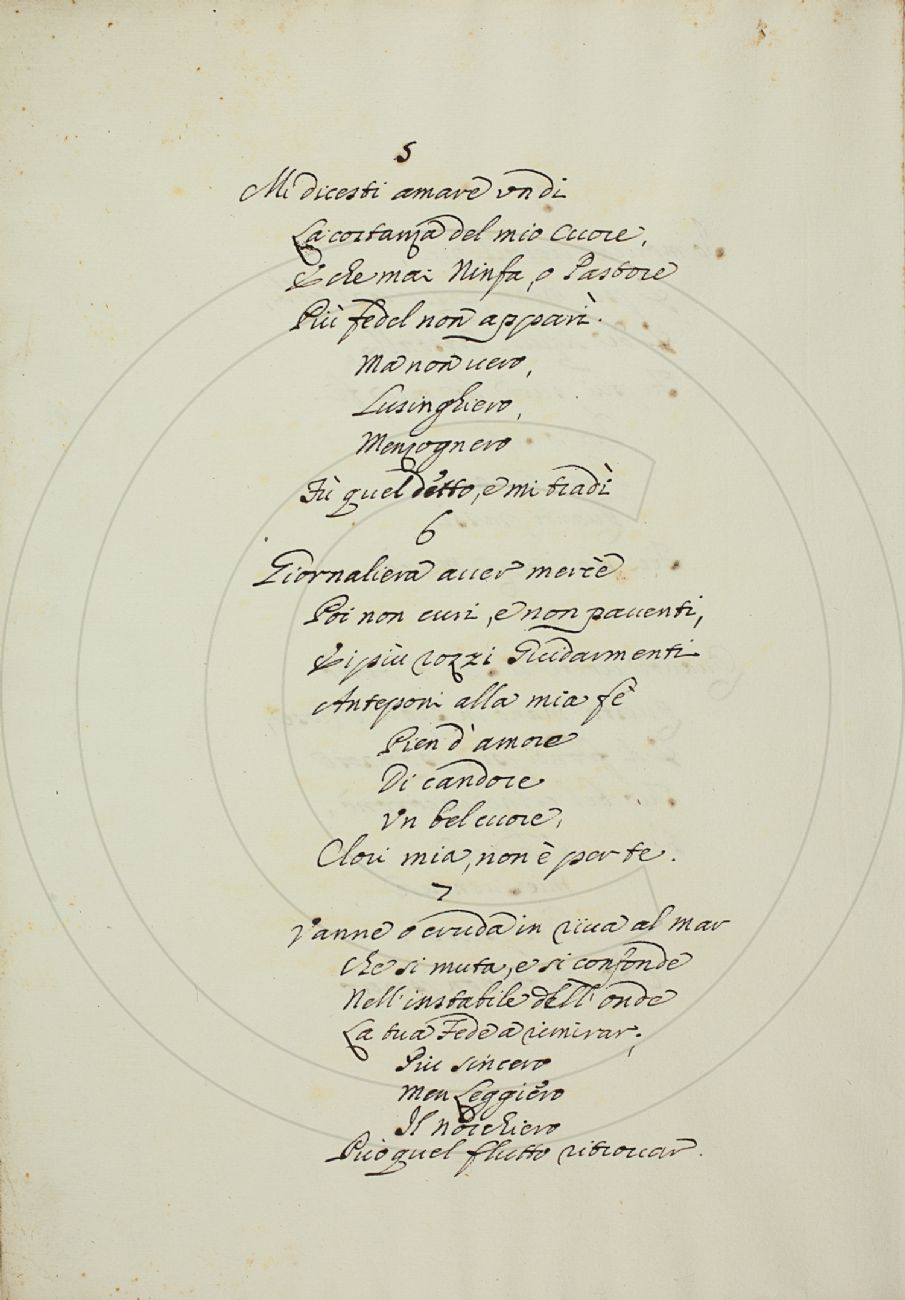 5
Mi dicesti amare vn di
La costanza del mio Cuore,
E che mai Ninfa, o Pastore
Più fedel non apparì.
Ma non uero,
Lusinghiero,
Menzognero
Fù quel detto, e mi tradì
6
Giornaliera auer mercè
Poi non curi, e non pauenti,
E i più rozzi
Anteponi alla mia fè
Pien d'amore
Di candore
Vn bel cuore,
Clori mia, non è per te.
7
Vanne o cruda in riua al mar
Che si muta, e si confonde
Nell'instabile dell'onde
La tua Fede a rimirar;
Più sincero
Men Leggiero
Il Nocchiero
Può quel flutto ritrouar.